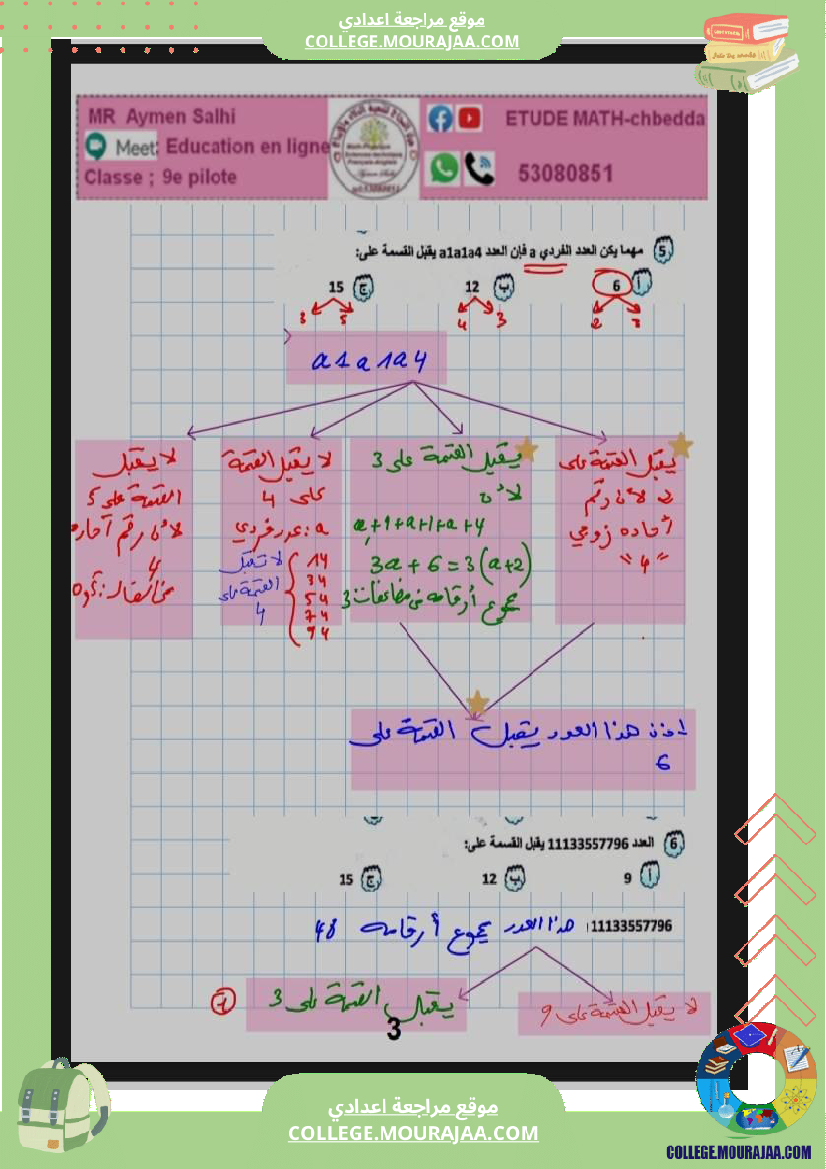 موقع مراجعة اعدادي
COLLEGE.MOURAJAA.COM
MR Aymen Salhi
Meet: Education en ligne
Classe ; 9e pilote
ETUDE MATH-chbedda
53080851
5 مهما يكن العدد الفردي a فإن العدد a1a1a4 يقبل القسمة على:
أ 6 ب 12 ج 15
2 3 4 3 3 5
a1a1a4
يقبل القسمة على
2 لأن رقم
آحاده زوجي
"4"
يقبل القسمة على 3
لأن
a+1+a+1+a+4
3a+6=3(a+2)
مجموع أرقامه من مضاعفات 3
لا يقبل القسمة
على 4
a: عدد فردي
14
34
54
74
94
لا تقبل
القسمة على
4
لا يقبل
القسمة على 5
لأن رقم آحاده
4
إذن هذا العدد يقبل القسمة على
6
6 العدد 11133557796 يقبل القسمة على:
أ 9 ب 12 ج 15
11133557796 هذا العدد مجموع أرقامه 48
لا يقبل القسمة على 9
يقبل القسمة على 3
1
3
موقع مراجعة اعدادي
COLLEGE.MOURAJAA.COM
COLLEGE.MOURAJAA.COM